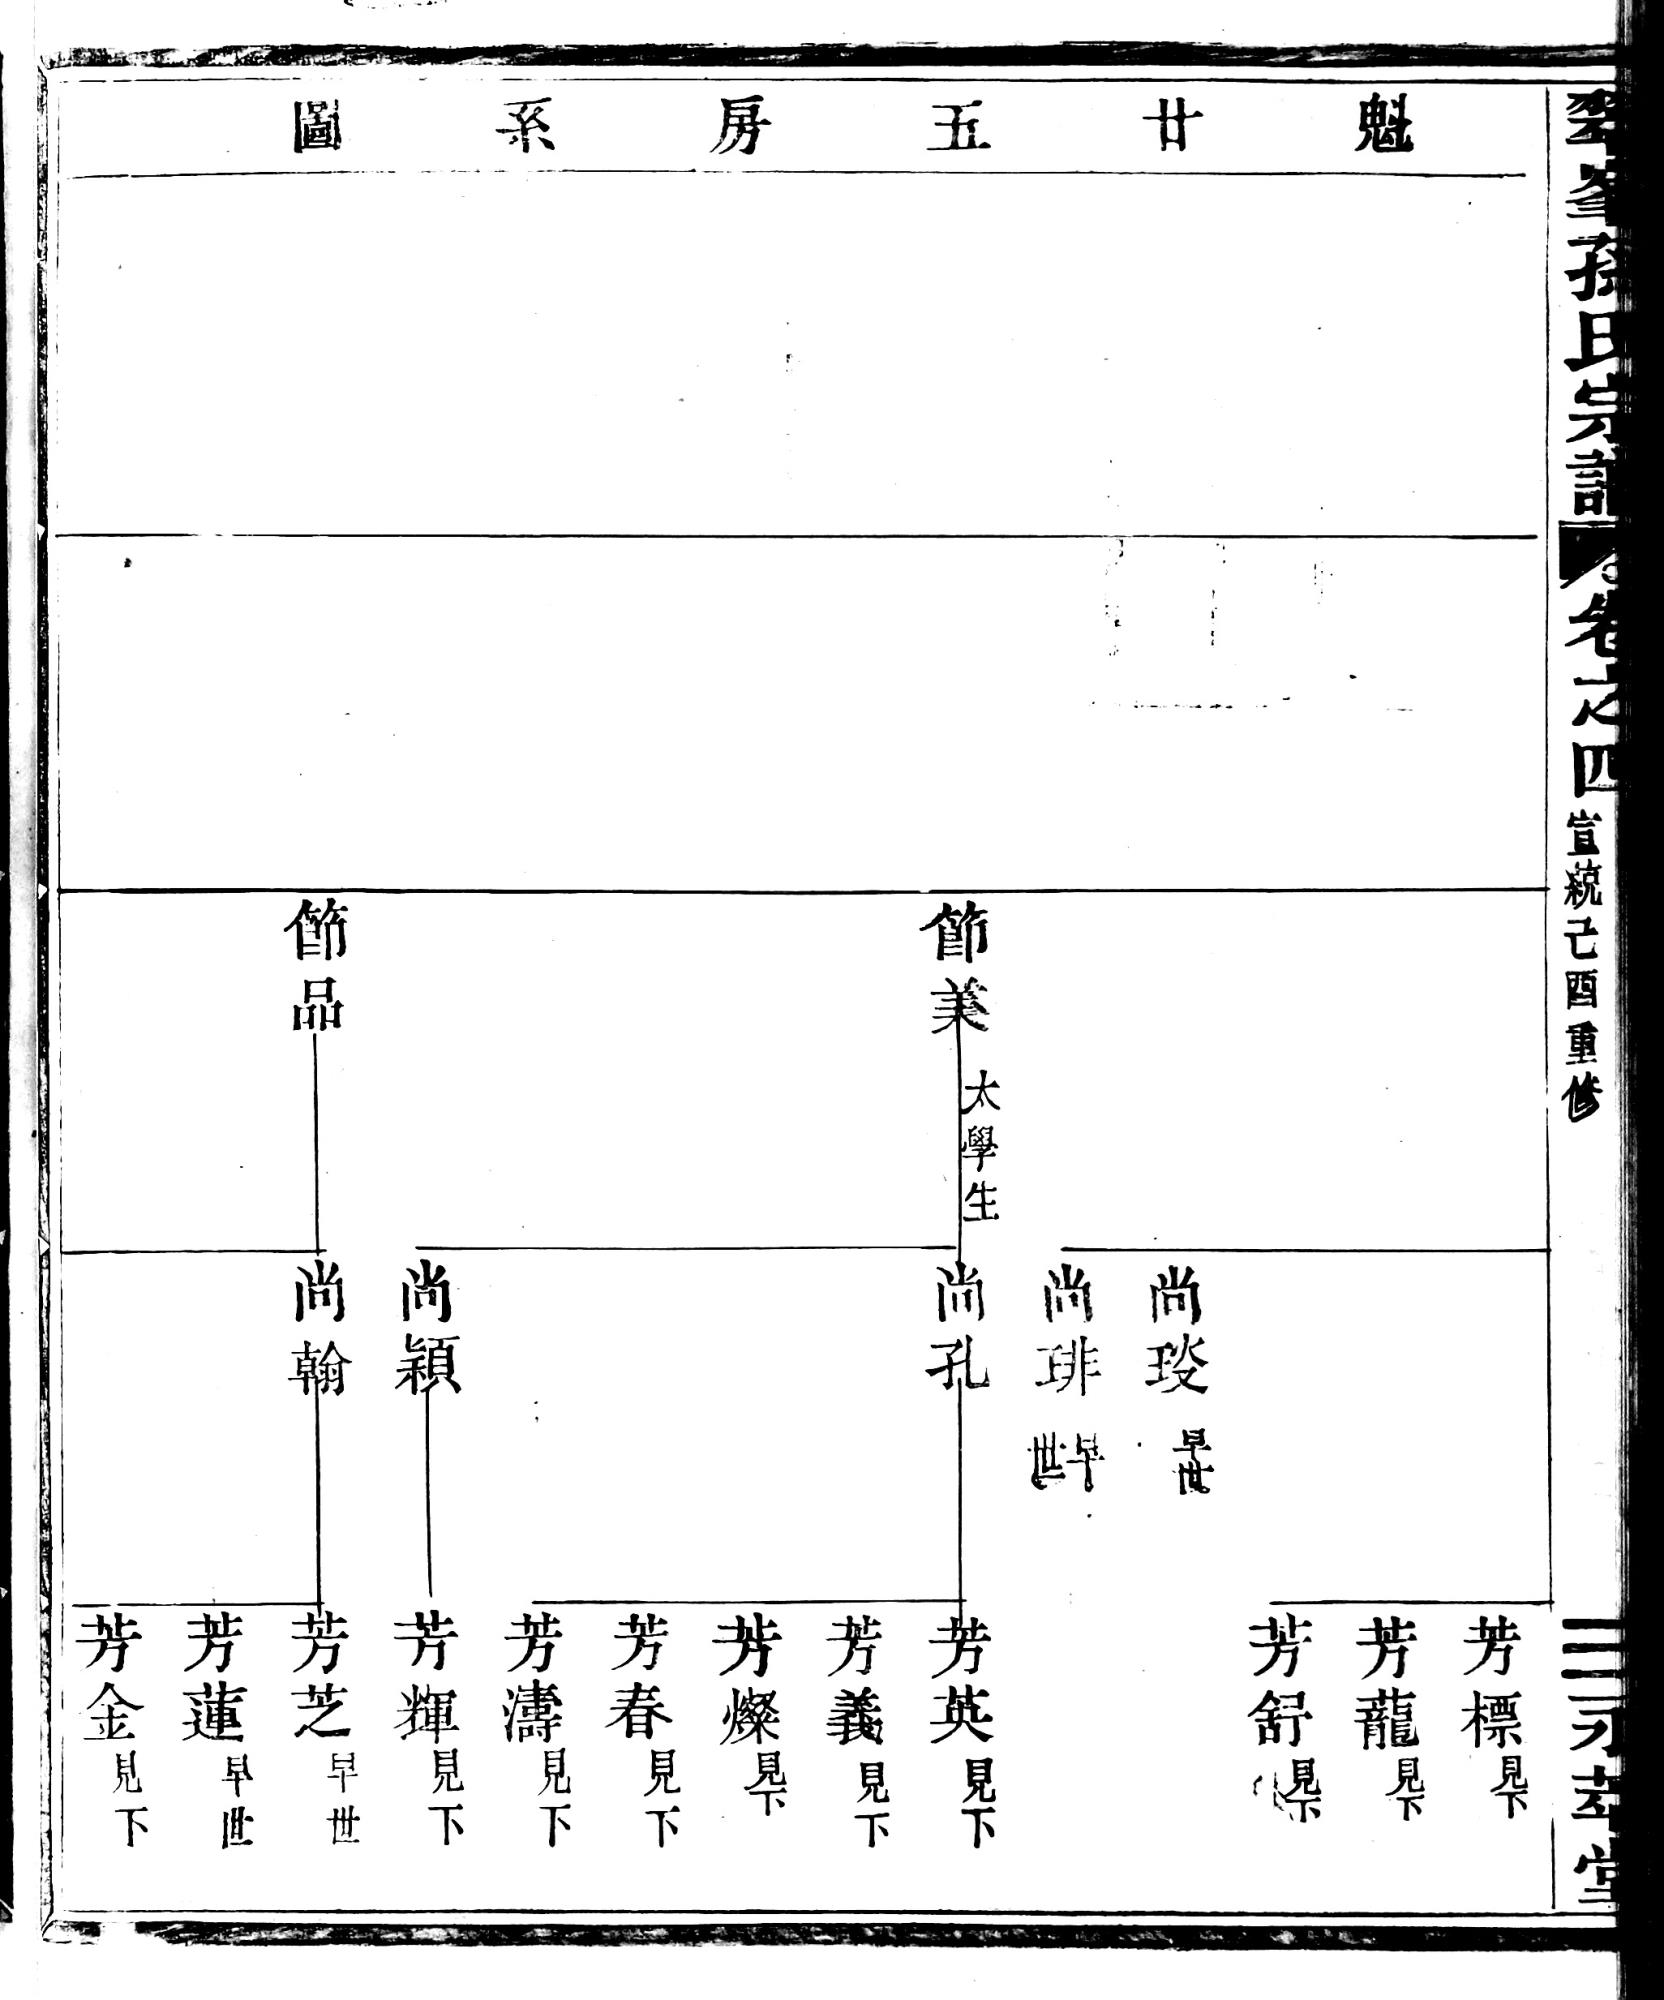 翠峯孫氏宗譜
卷之四
宣統己酉重修
永萃堂
魁廿五房系圖
節美 太學生
節品
尚琰 早世
尚琲 早世
尚孔
尚穎
尚翰
芳標 見下
芳龍 見下
芳舒 見下
芳英 見下
芳義 見下
芳燦 見下
芳春 見下
芳濤 見下
芳輝 見下
芳芝 早世
芳蓮 早世
芳金 見下